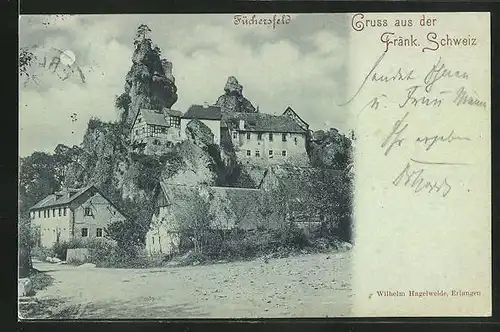 Füchersfeld
Gruss aus der
Fränk. Schweiz
sendet Ihnen
u. Frau
Ihr ergeben
Wilhelm Hagelweide, Erlangen